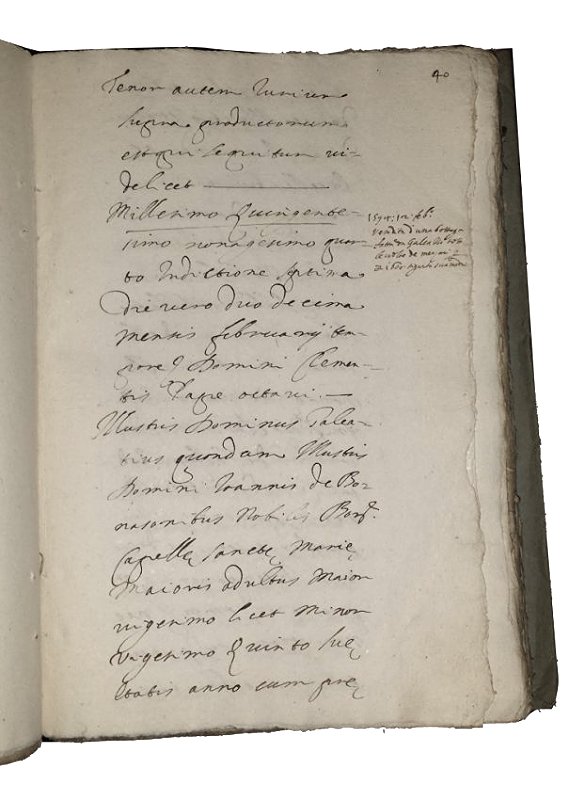 40
Tenor autem Iurium
supra productorum
estqui sequitur vi-
delicet
Millesimo Quingente-
simo nonagesimo quar-
to Indictione septima
die vero duodecima
mensis februarij tem-
pore Domini Clemen-
tis Pape octavi.
Illustris Dominus Galea-
tius quondam Illustris
Domini Ioannis de Bo-
nasonibus Nobilis Bon.
Capelle sancte Marie
maioris adultus maior
vigesimo licet minor
vigesimo Quinto sue
etatis anno cum pre
1594: 12 feb.
vendita d'una bottega